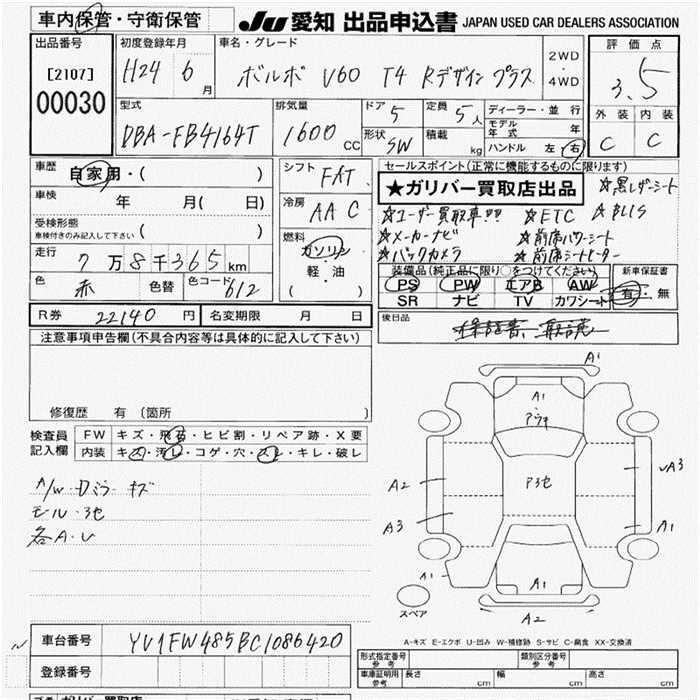 車内保管・守衛保管
JU 愛知 出品申込書 JAPAN USED CAR DEALERS ASSOCIATION
出品番号
[2107]
00030
初度登録年月
H24 6月
車名・グレード
ボルボ V60 T4 Rデザイン プラス
2WD・4WD
評価点
3.5
外装 内装
C C
型式
DBA-FB4164T
排気量
1600 CC
ドア 5
形状 SW
定員 5人
積載 kg
ディーラー・並行
モデル年式 年
ハンドル 左・右
車歴 自家用・( )
車検 年 月( 日)
受検形態
車検付きのみ記入して下さい ( )
走行 7万8千365km
色 赤 色替 色コード 612
シフト FAT
冷房 AAC
燃料
ガソリン
軽・油
( )
セールスポイント(正常に機能するものに限ります)
★ガリバー買取店出品
★黒レザーシート
★ユーザー買取車!!! ★ETC ★BLIS
★メーカーナビ ★前席パワーシート
★バックカメラ ★前席シートヒーター
装備品(純正品に限り○をつけてください)
PS PW エアB AW
SR ナビ TV カワシート
新車保証書
有・無
R券 22140円 名変期限 月 日
後日品
保証書、取説
注意事項申告欄(不具合内容等は具体的に記入して下さい)
修復歴 有 (箇所 )
検査員記入欄
FW キズ・飛石・ヒビ割・リペア跡・X要
内装 キズ・汚レ・コゲ・穴・スレ・キレ・破レ
A/w・Dミラーキズ
モール・3セ
各A・U
A1
A1
アウキ
P3セ
A2
A3
A3
A1
A1
A1
A2
スペア
A-キズ E-エクボ U-凹み W-補修跡 S-サビ C-腐食 XX-交換済
車台番号 YV1FW485BC1086420
登録番号
形式指定番号 参考 類別区分番号 参考
車庫証明用 参考 長さ cm 幅 cm 高さ cm
ガリバー買取店